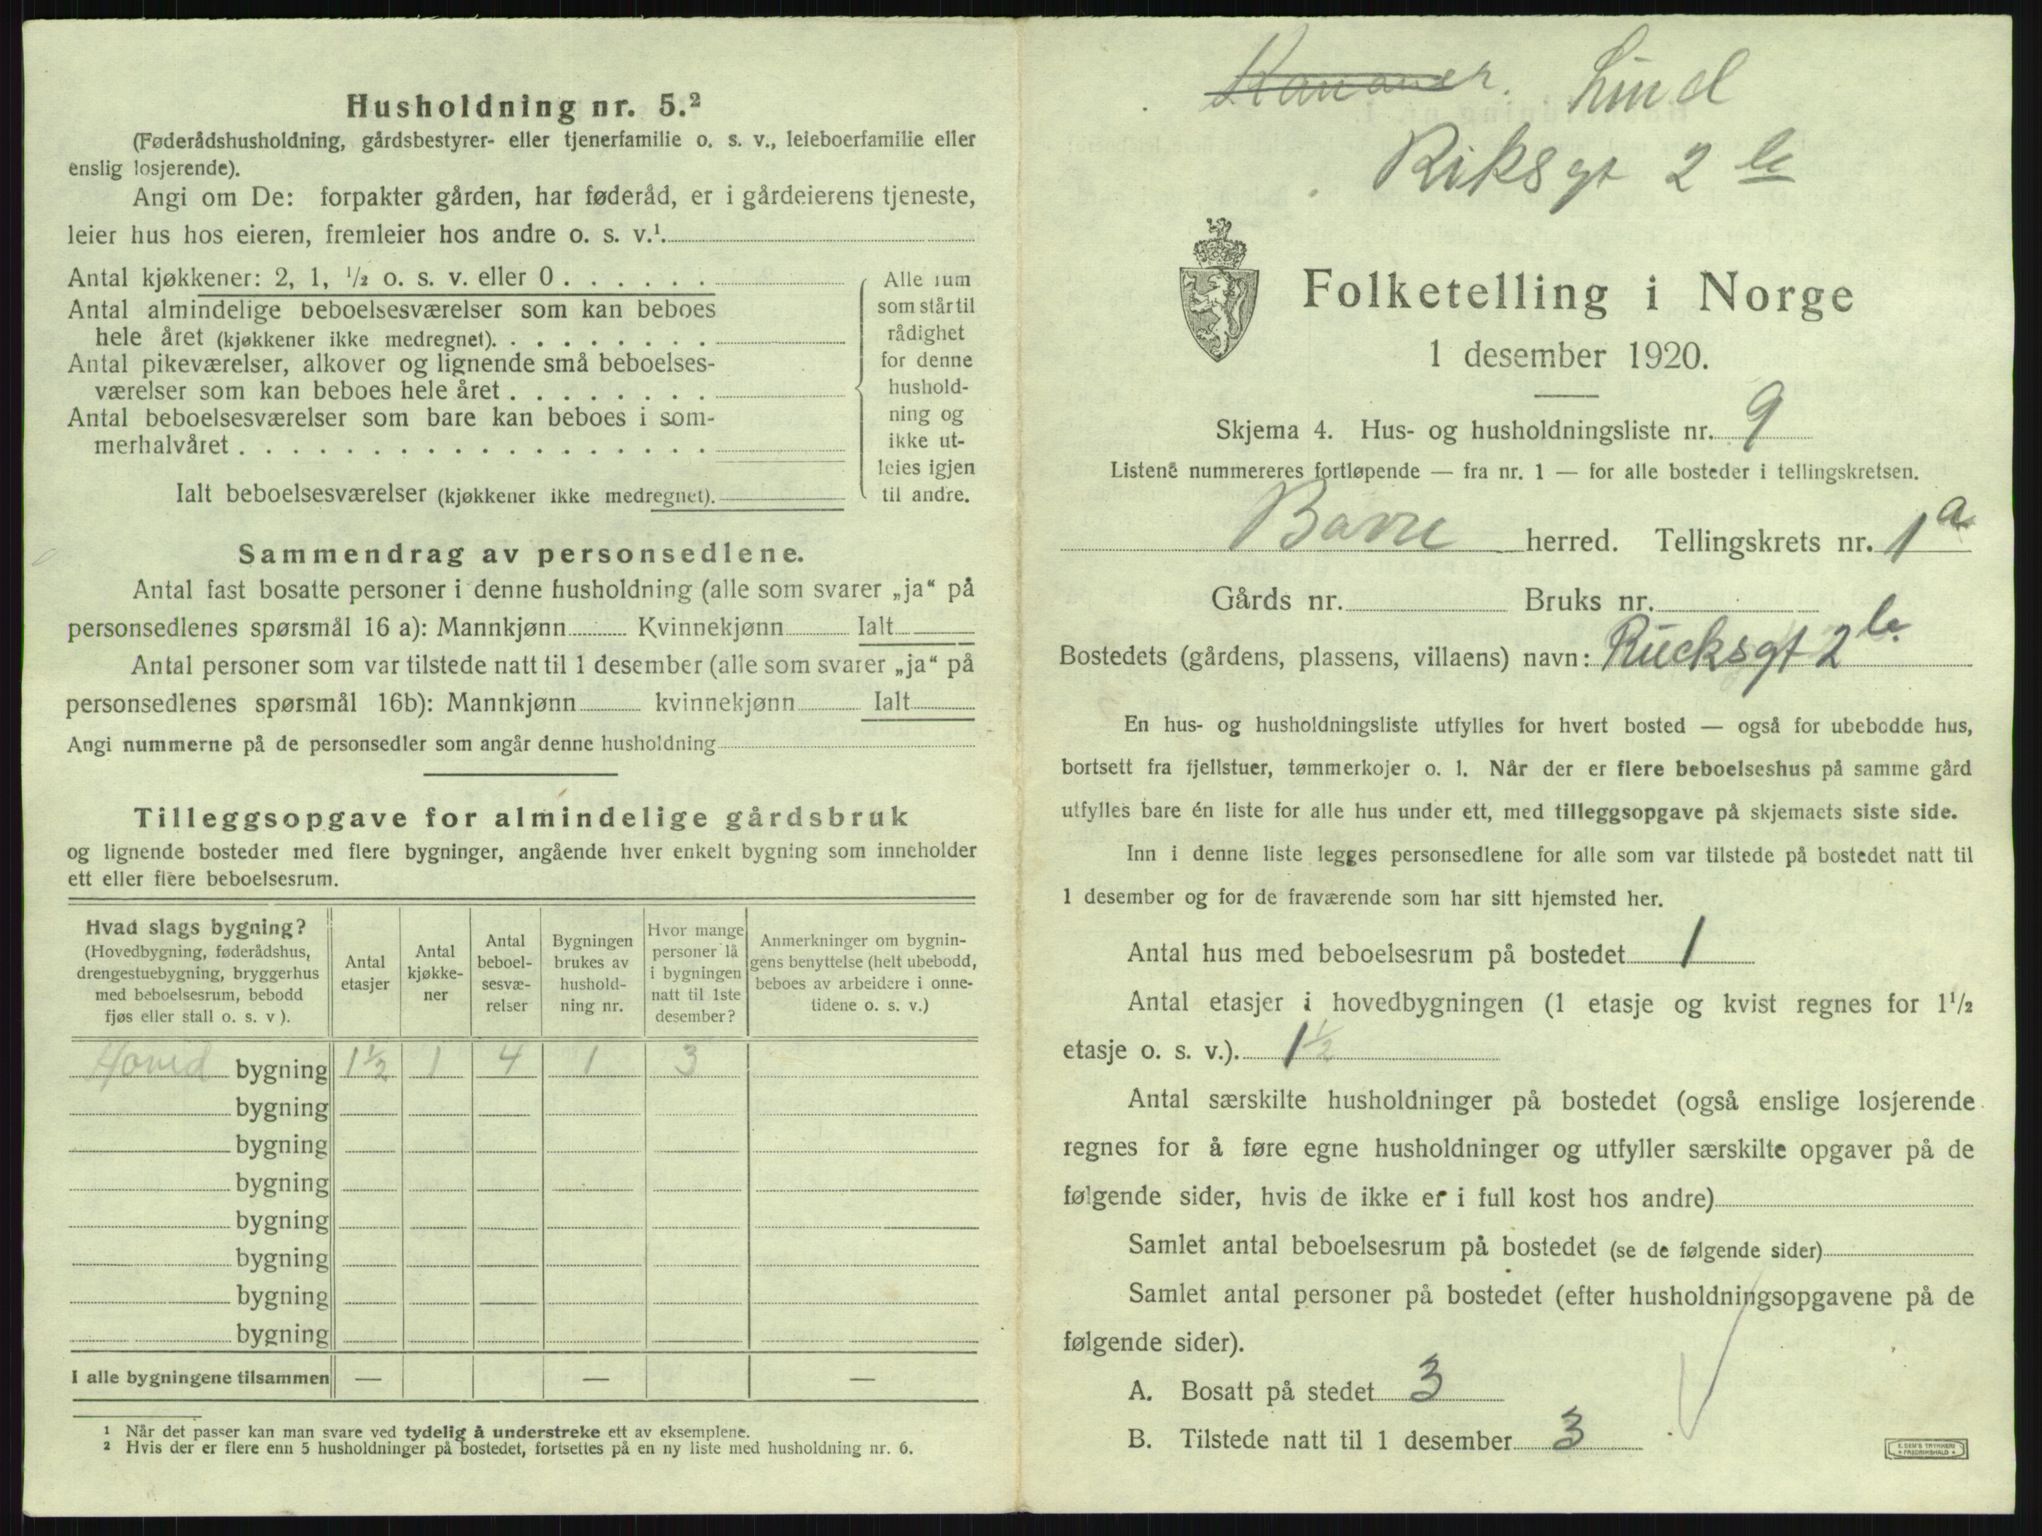 Husholdning nr. 5.²
(Føderådshusholdning, gårdsbestyrer- eller tjenerfamilie o. s. v., leieboerfamilie eller
enslig losjerende).
Angi om De: forpakter gården, har føderåd, er i gårdeierens tjeneste,
leier hus hos eieren, fremleier hos andre o. s. v.¹.
Antal kjøkkener: 2, 1, ½ o. s. v. eller 0 . . . . . .
Antal almindelige beboelsesværelser som kan beboes
hele året (kjøkkener ikke medregnet). . . . . . . . .
Antal pikeværelser, alkover og lignende små beboelses-
værelser som kan beboes hele året . . . . . . . .
Antal beboelsesværelser som bare kan beboes i som-
merhalvåret . . . . . . . . . . . . . . . . . .
Ialt beboelsesværelser (kjøkkener ikke medregnet).
Alle rum
som står til
rådighet
for denne
hushold-
ning og
ikke ut-
leies igjen
til andre.
Sammendrag av personsedlene.
Antal fast bosatte personer i denne husholdning (alle som svarer „ja“ på
personsedlenes spørsmål 16 a): Mannkjønn Kvinnekjønn Ialt
Antal personer som var tilstede natt til 1 desember (alle som svarer „ja“ på
personsedlenes spørsmål 16b): Mannkjønn kvinnekjønn Ialt
Angi nummerne på de personsedler som angår denne husholdning
Tilleggsopgave for almindelige gårdsbruk
og lignende bosteder med flere bygninger, angående hver enkelt bygning som inneholder
ett eller flere beboelsesrum.
Hvad slags bygning?
(Hovedbygning, føderådshus,
drengestuebygning, bryggerhus
med beboelsesrum, bebodd
fjøs eller stall o. s. v ).
Antal
etasjer
Antal
kjøkke-
ner
Antal
beboel-
sesvæ-
relser
Bygningen
brukes av
hushold-
ning nr.
Hvor mange
personer lå
i bygningen
natt til 1ste
desember?
Anmerkninger om bygnin-
gens benyttelse (helt ubebodd,
beboes av arbeidere i onne-
tidene o. s. v.)
Hoved bygning 1½ 1 4 1 3
bygning
bygning
bygning
bygning
bygning
bygning
bygning
I alle bygningene tilsammen — — —
¹ Når det passer kan man svare ved tydelig å understreke ett av eksemplene.
² Hvis der er flere enn 5 husholdninger på bostedet, fortsettes på en ny liste med husholdning nr. 6.
Lind
Riksgt 2 b
Folketelling i Norge
1 desember 1920.
Skjema 4. Hus- og husholdningsliste nr. 9
Listene nummereres fortløpende — fra nr. 1 — for alle bosteder i tellingskretsen.
Borre herred. Tellingskrets nr. 1 a
Gårds nr. Bruks nr.
Bostedets (gårdens, plassens, villaens) navn: Rücksgt 2 b
En hus- og husholdningsliste utfylles for hvert bosted — også for ubebodde hus,
bortsett fra fjellstuer, tømmerkojer o. l. Når der er flere beboelseshus på samme gård
utfylles bare én liste for alle hus under ett, med tilleggsopgave på skjemaets siste side.
Inn i denne liste legges personsedlene for alle som var tilstede på bostedet natt til
1 desember og for de fraværende som har sitt hjemsted her.
Antal hus med beboelsesrum på bostedet 1
Antal etasjer i hovedbygningen (1 etasje og kvist regnes for 1½
etasje o. s. v.). 1½
Antal særskilte husholdninger på bostedet (også enslige losjerende
regnes for å føre egne husholdninger og utfyller særskilte opgaver på de
følgende sider, hvis de ikke er i full kost hos andre)
Samlet antal beboelsesrum på bostedet (se de følgende sider)
Samlet antal personer på bostedet (efter husholdningsopgavene på de
følgende sider).
A. Bosatt på stedet 3
B. Tilstede natt til 1 desember 3
E. SEM'S TRYKKERI
FREDRIKSHALD